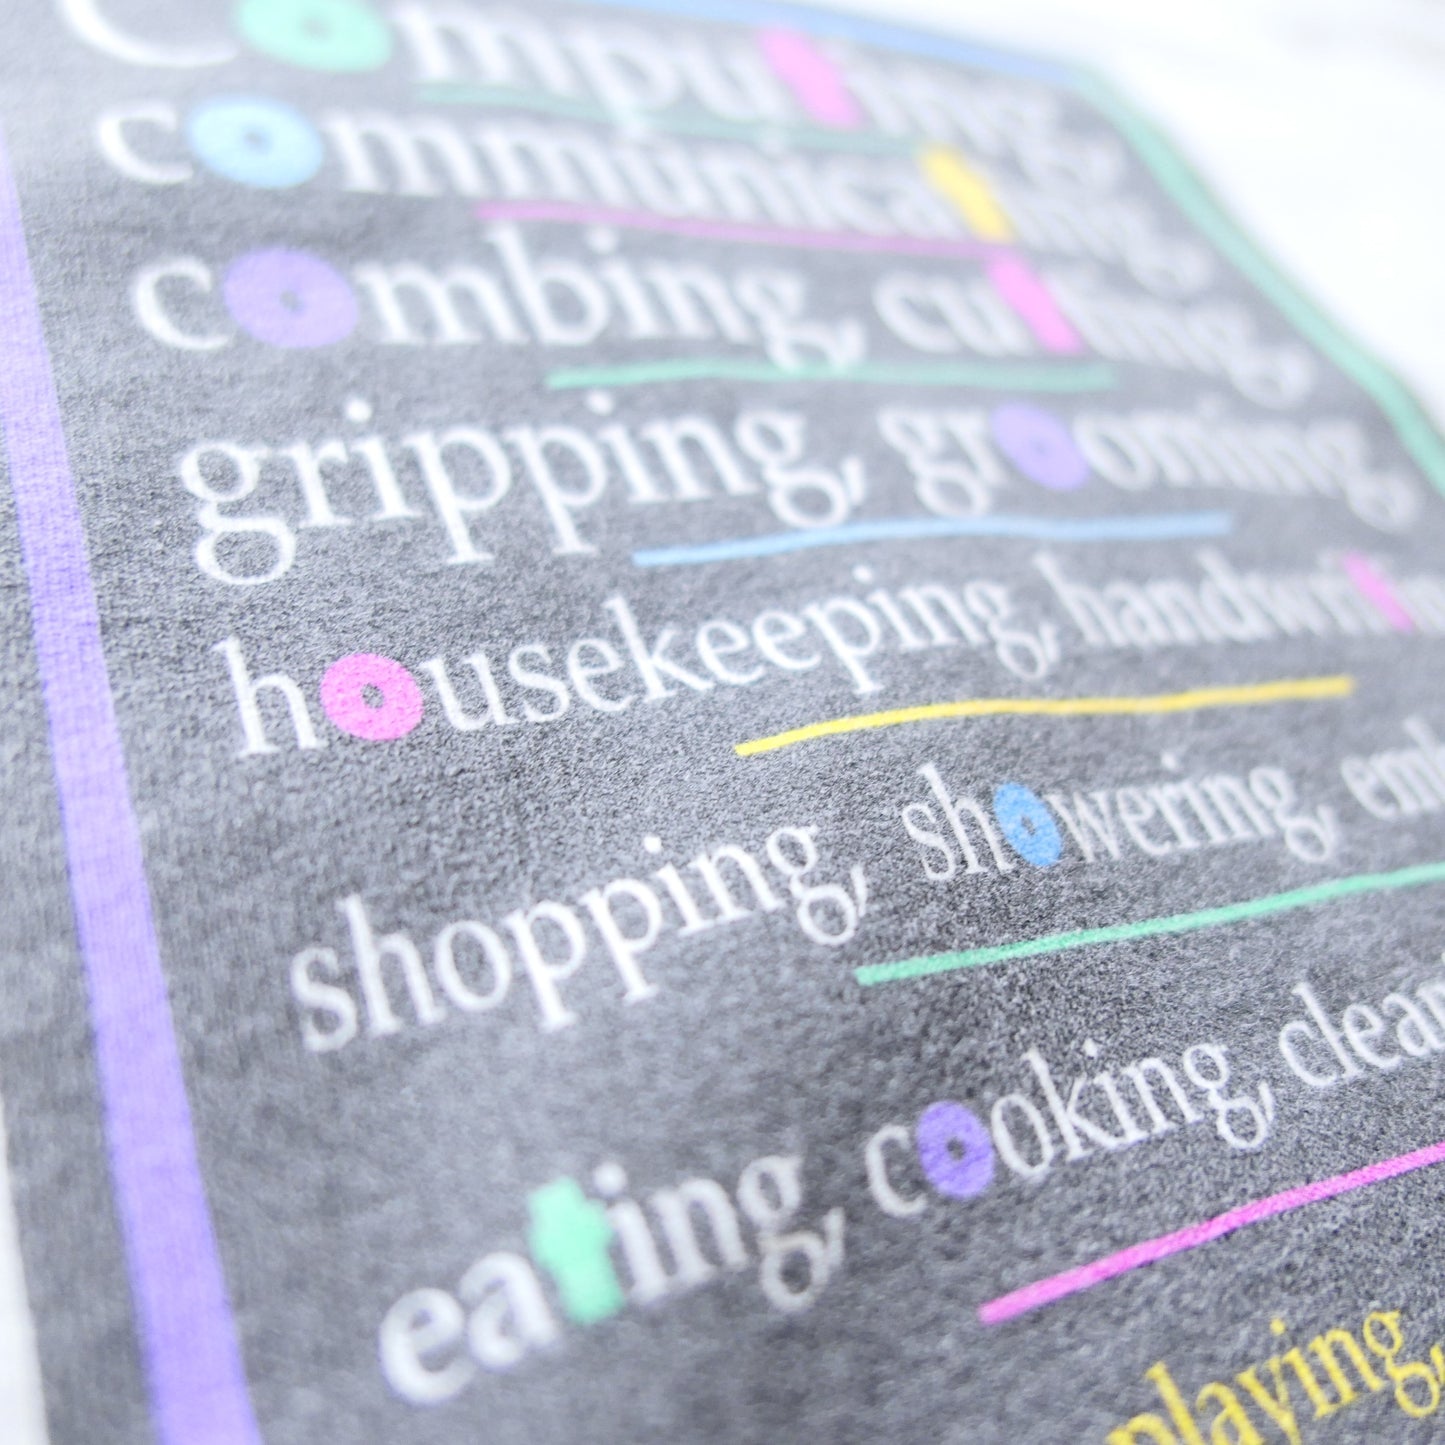 Computing,
communicating,
combing, cutting,
gripping, grooming,
housekeeping, handwritin
shopping, showering, emb
eating, cooking, clean
playing,